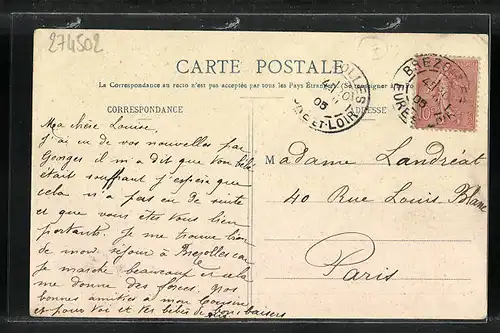 274502
CARTE POSTALE
La Correspondance au recto n'est pas acceptée par tous les Pays Étrangers. (Se renseigner à la Poste)
CORRESPONDANCE
ADRESSE
BREZOLLES
05
EURE-ET-LOIR
BREZOLLES
05
EURE
10
Ma chère Louise,
j'ai eu de vos nouvelles par
Georges il m'a dit que ton bébé
était souffrant j'espère que
cela n'a pas eu de suite
et que vous êtes tous bien
portants. Je me trouve bien
de mon séjour à Brezolles car
je marche beaucoup et cela
me donne des forces. Mes
bonnes amitiés à mon Cousin
et pour toi et tes bébés de bons baisers
M
Madame Landréat
40 Rue Louis Blanc
Paris